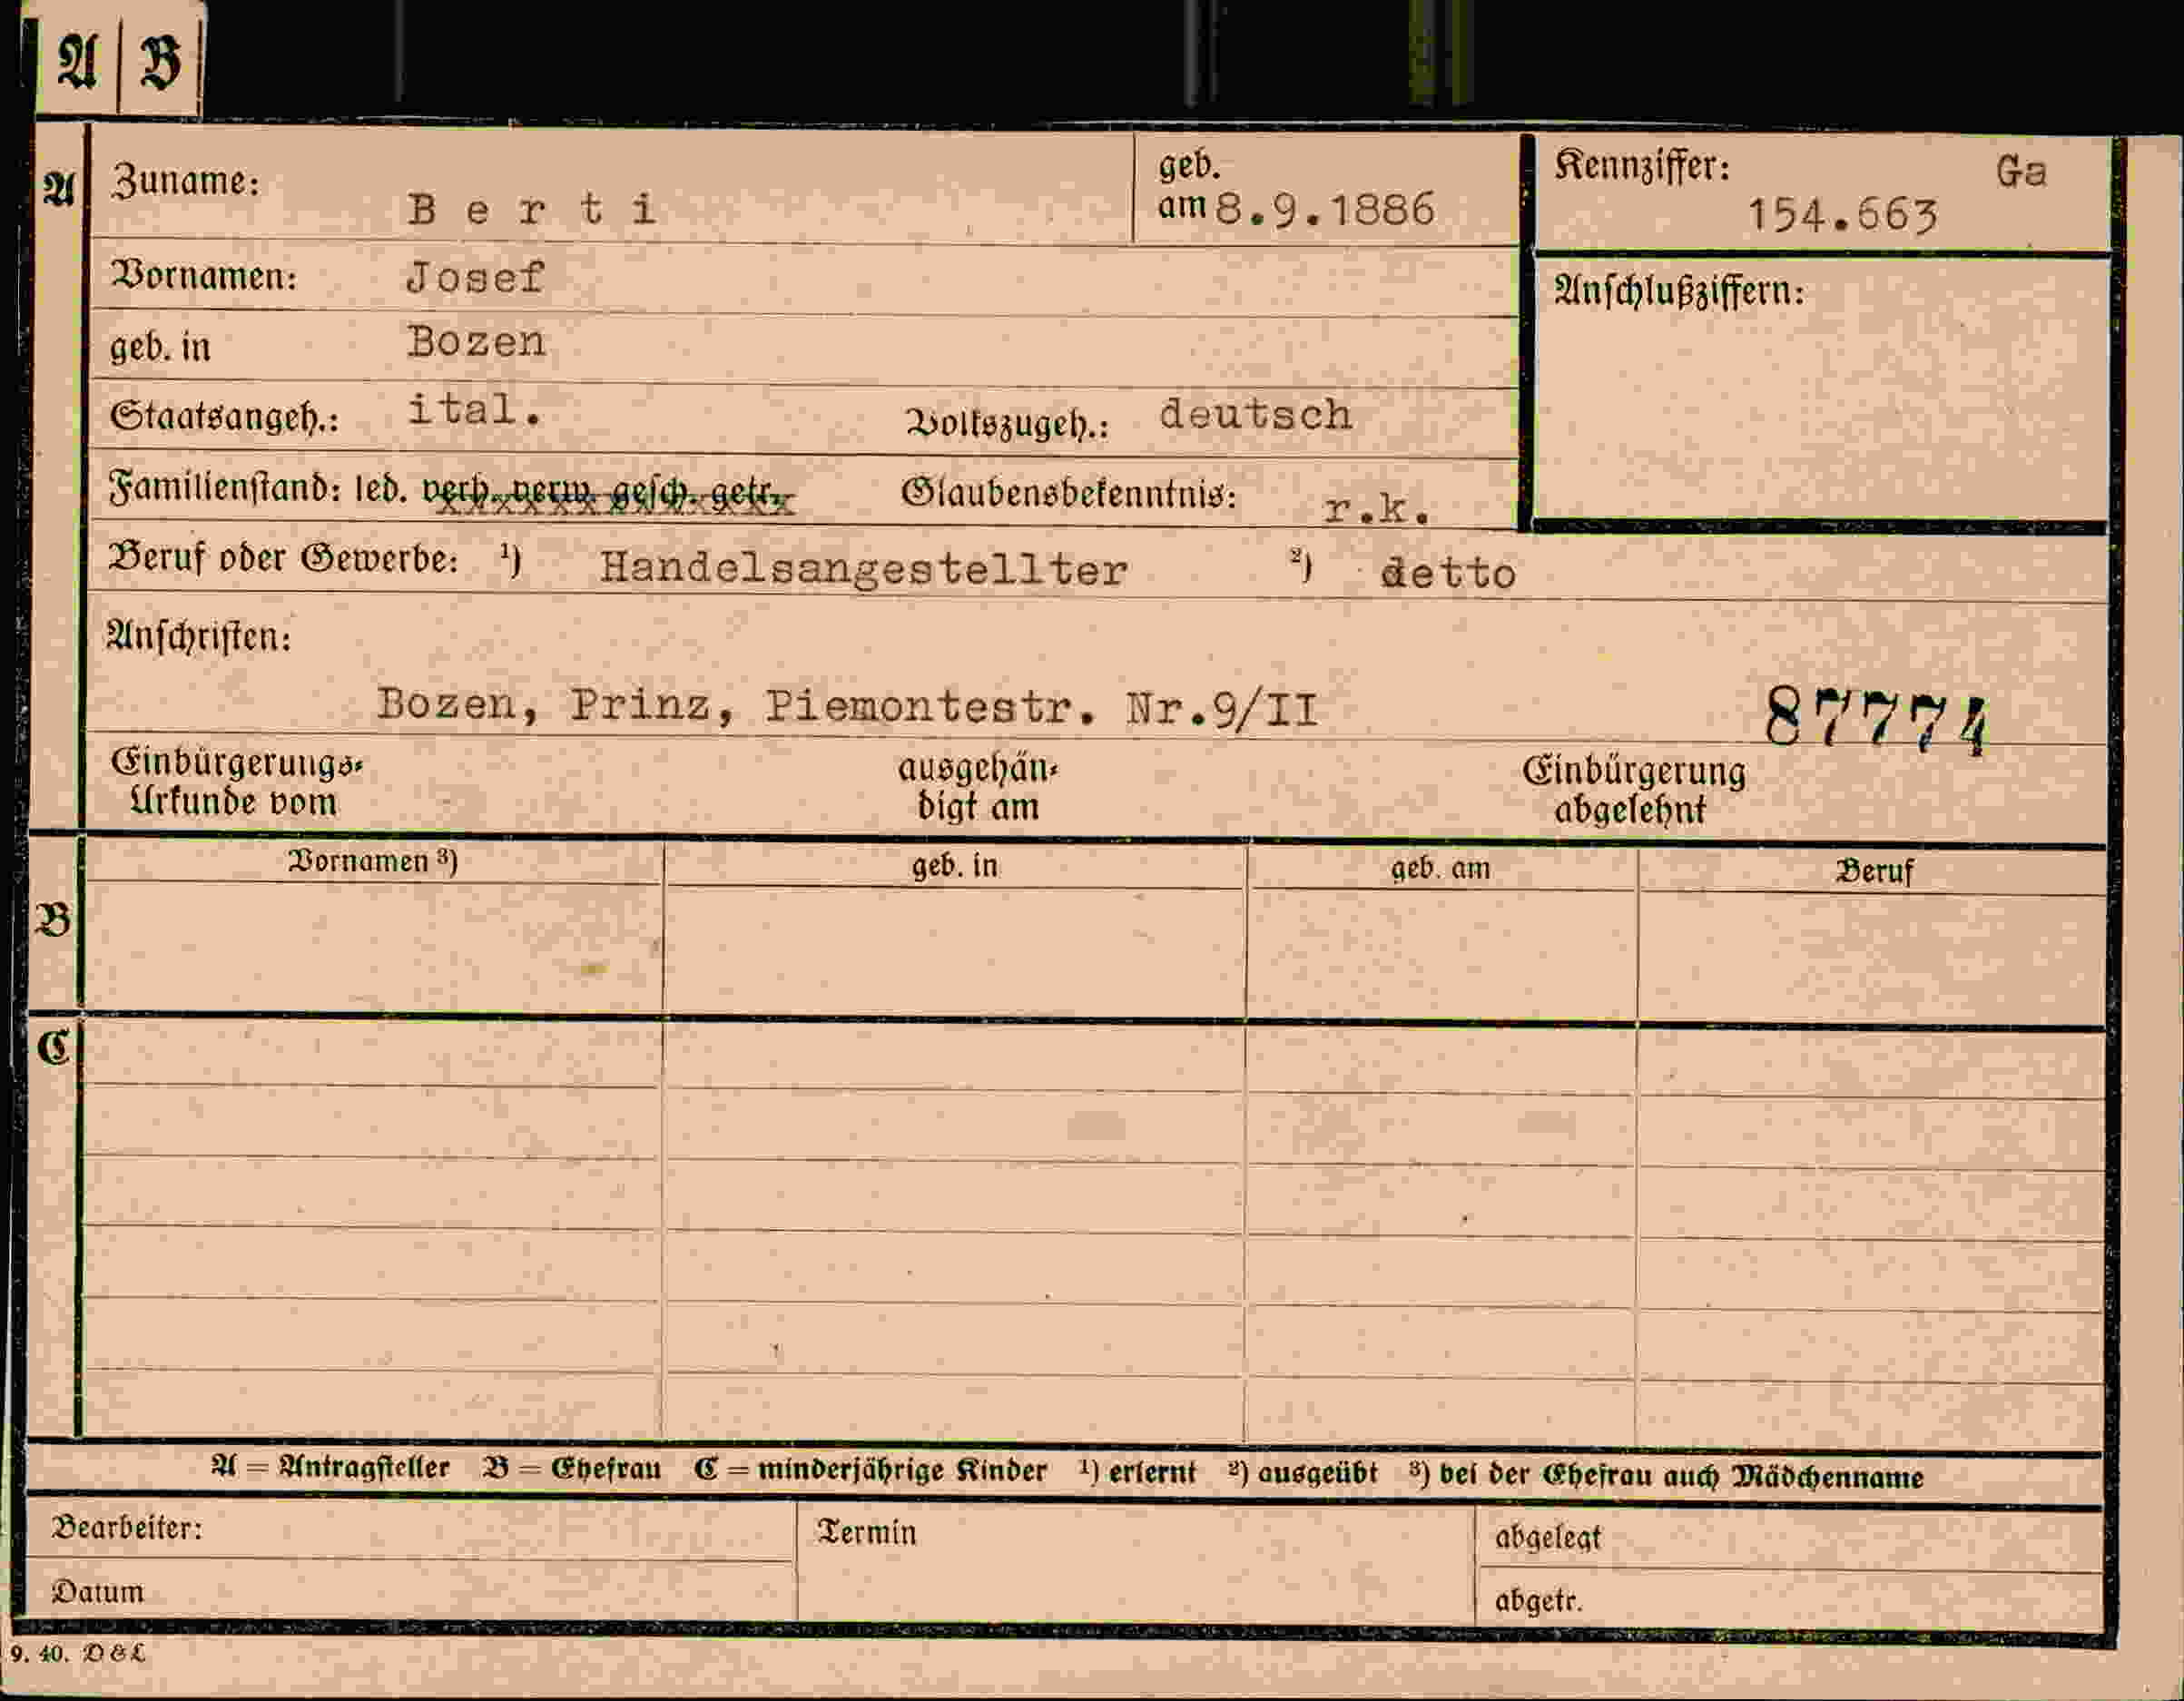 A B
A
Zuname: Berti
geb. am 8.9.1886
Kennziffer: Ga
154.663
Vornamen: Josef
Anschlußziffern:
geb. in Bozen
Staatsangeh.: ital. Volkszugeh.: deutsch
Familienstand: led. verh. verw. gesch. getr. Glaubensbekenntnis: r.k.
Beruf oder Gewerbe: ¹) Handelsangestellter ²) detto
Anschriften:
Bozen, Prinz, Piemontestr. Nr.9/II 87774
Einbürgerungs- ausgehän- Einbürgerung
Urkunde vom digt am abgelehnt
Vornamen ³) geb. in geb. am Beruf
B
C
A = Antragsteller B = Ehefrau C = minderjährige Kinder ¹) erlernt ²) ausgeübt ³) bei der Ehefrau auch Mädchenname
Bearbeiter: Termin abgelegt
Datum abgetr.
9. 40. D & L